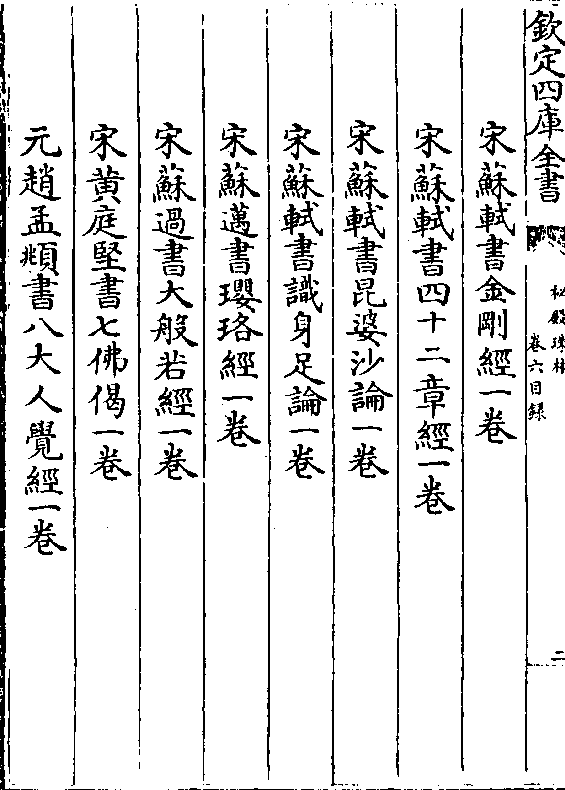 欽定四庫全書
秘殿珠林
卷六目録
二
宋蘇軾書金剛經一卷
宋蘇軾書四十二章經一卷
宋蘇軾書昆婆沙論一卷
宋蘇軾書識身足論一卷
宋蘇邁書瓔珞經一卷
宋蘇過書大般若經一卷
宋黄庭堅書七佛偈一卷
元趙孟頫書八大人覺經一卷